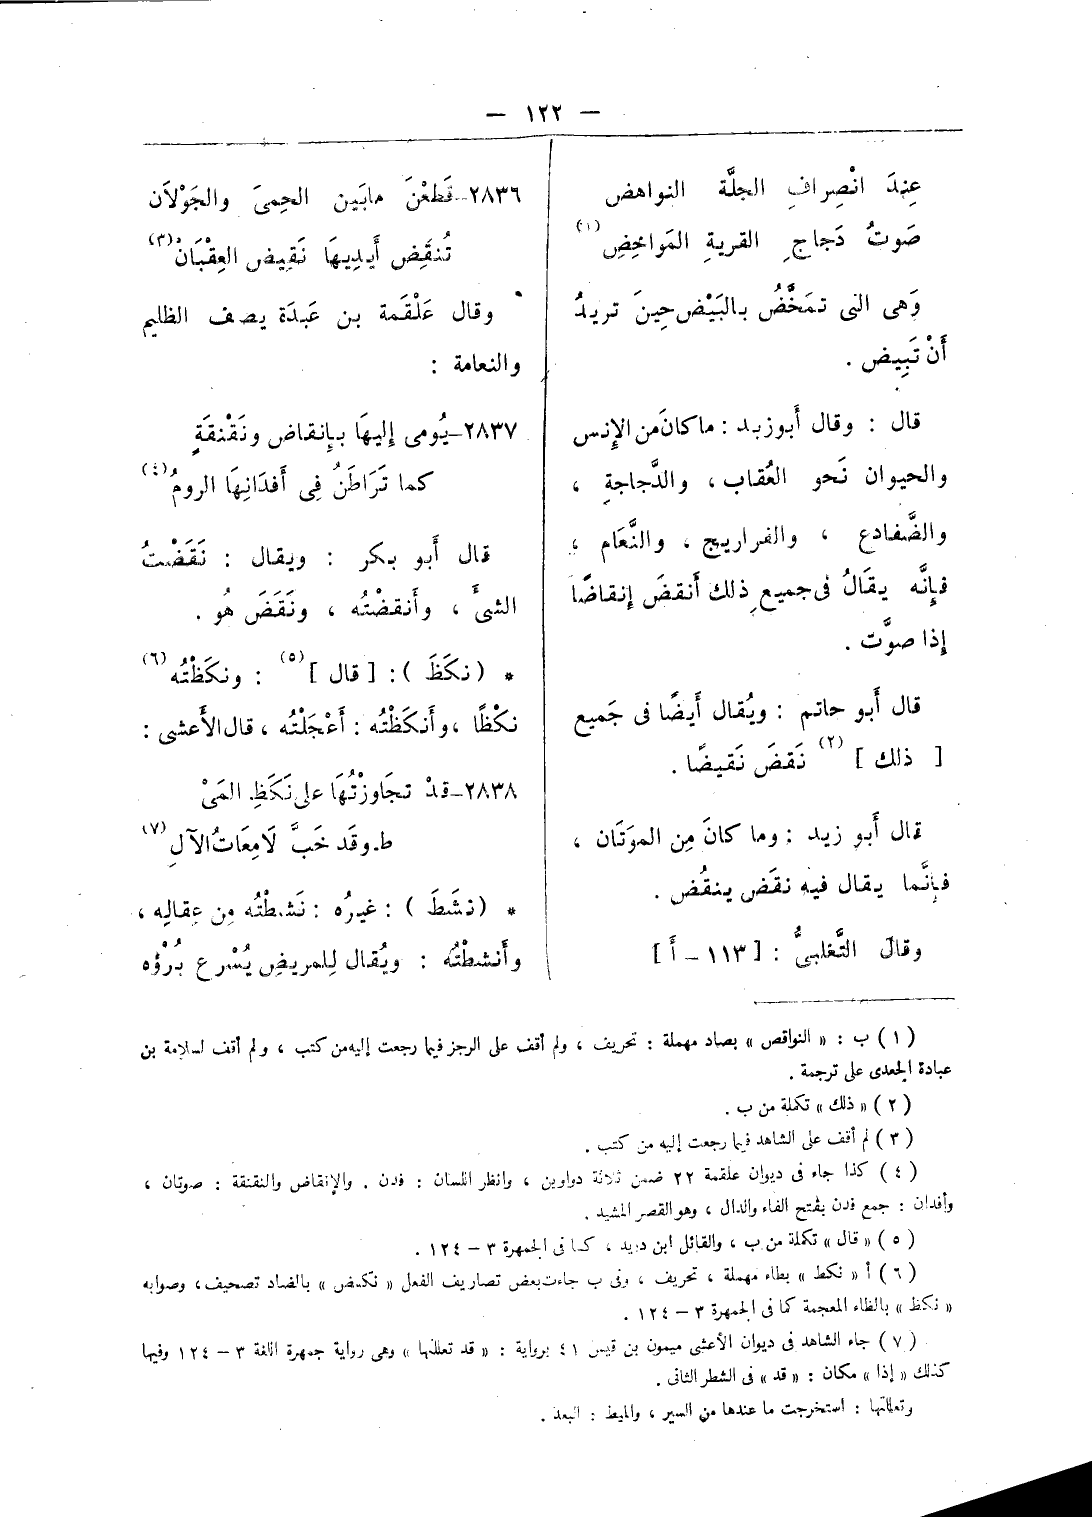 — ١٢٢ —
عِندَ انْصِرافِ الجلَّة النواهض
صَوتُ دَجاجِ القريةِ المَواخِضِ (١)
وَهى التى تمَخَّضُ بالبَيْض حِينَ تريدُ
أَنْ تَبِيض .
قال : وقال أَبوزيد : ماكانَ من الإِنس
والحيوان نَحو العُقاب ، والدَّجاجةِ ،
والضَّفادع ، والفراريج ، والنَّعَام ،
فإِنَّه يقَالُ فى جميع ذلك أَنقضَ إِنقاضًا
إِذا صوَّت .
قال أَبو حاتم : ويُقال أَيضًا فى جَميع
[ ذلك ] (٢) نَقضَ نَقيضًا .
قال أَبو زيد : وما كانَ مِن الموَتَان ،
فإِنَّما يقال فيه نقَض ينقُض .
وقالَ التَّغلبىُّ : [ ١١٣ – أَ ]
٢٨٣٦–قَطعْنَ مابَين الحِمىَ والجَوْلاَن
تُنقَِض أَيدِيهَا نَقِيض العِقْبَانْ (٣)
وقال عَلْقَمة بن عَبدَة يصف الظليم
والنعامة :
٢٨٣٧–يُومى إِليهَا بإِنقاض ونَقْنقَةٍ
كما تَرَاطَنُ فِى أَفدَانِهَا الرومُ (٤)
قال أَبو بكر : ويقال : نَقَضْتُ
الشىَّ ، وأَنقضْتُه ، ونَقَضَ هُو .
* ( نكَظَ ) : [ قال ] (٥) : ونكَظْتُه (٦)
نكْظًا ، وأَنكَظْتُه : أَعْجَلْتُه ، قال الأَعشى :
٢٨٣٨–قدْ تجَاوزْتُهَا على نَكَظِ المَيْ
ط وقَد خَبَّ لَامِعَاتُ الآلِ (٧)
* ( نشَطَ ) : غيرُه : نَشطْتُه مِن عِقالِه ،
وأَنشطْتُه : ويُقال لِلمريضِ يُسْرع بُرْؤه
( ١ ) ب : « النواقص » بصاد مهملة : تحريف ، ولم أقف على الرجز فيما رجعت إليه من كتب ، ولم أقف لسلامة بن
عبادة الجعدى على ترجمة .
( ٢ ) « ذلك » تكملة من ب .
( ٣ ) لم أقف على الشاهد فيما رجعت إليه من كتب .
( ٤ ) كذا جاء فى ديوان علقمة ٢٢ ضمن ثلاثة دواوين ، وانظر اللسان : فدن . والإنقاض والنقنقة : صوتان ،
وأفدان : جمع فدن بفتح الفاء والدال ، وهو القصر المشيد .
( ٥ ) « قال » تكملة من ب ، والقائل ابن دريد ، كما فى الجمهرة ٣ – ١٢٤ .
( ٦ ) أ « نكط » بطاء مهملة ، تحريف ، وفى ب جاءت بعض تصاريف الفعل « نكض » بالضاد تصحيف، وصوابه
« نكظ » بالظاء المعجمة كما فى الجمهرة ٣ – ١٢٤ .
( ٧ ) جاء الشاهد فى ديوان الأعشى ميمون بن قيس ٤١ برواية : « قد تعللتها » وهى رواية جمهرة اللغة ٣ – ١٢٤ وفيها
كذلك « إذا » مكان : « قد » فى الشطر الثانى .
وتعللتها : استخرجت ما عندها من السير ، والميط : البعد .